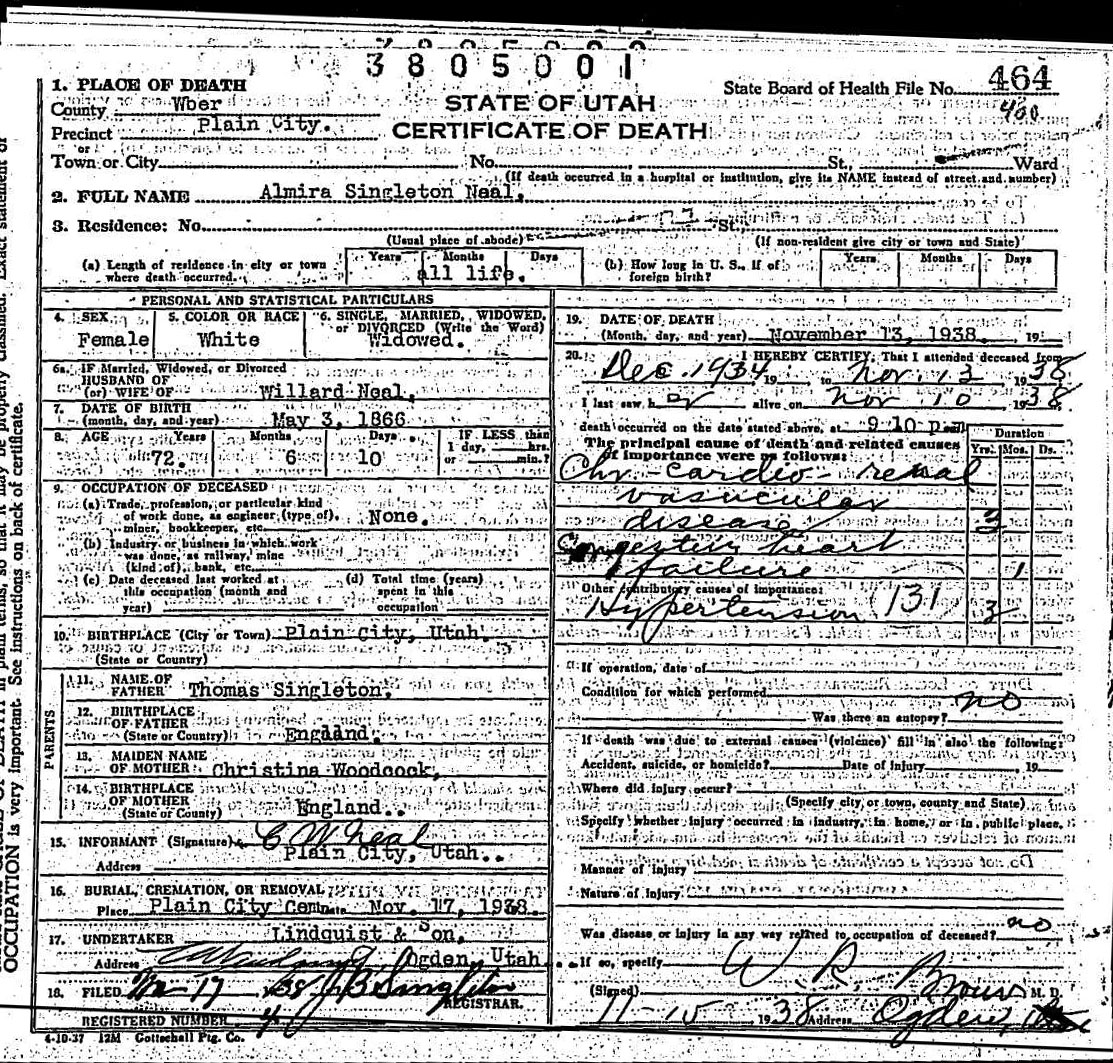 3805001
464
1. PLACE OF DEATH
State Board of Health File No.
County Wber
STATE OF UTAH
400
Precinct Plain City.
CERTIFICATE OF DEATH
or
Town or City No. St. Ward
(If death occurred in a hospital or institution, give its NAME instead of street and number)
2. FULL NAME Almira Singleton Neal,
3. Residence: No. St.
(Usual place of abode) (If non-resident give city or town and State)
(a) Length of residence in city or town where death occurred. Years Months Days
all life.
(b) How long in U. S., if of foreign birth? Years Months Days
PERSONAL AND STATISTICAL PARTICULARS
4. SEX 5. COLOR OR RACE 6. SINGLE, MARRIED, WIDOWED, or DIVORCED (Write the Word)
Female White Widowed.
6a. IF Married, Widowed, or Divorced
HUSBAND OF
(or) WIFE OF Willard Neal,
7. DATE OF BIRTH
(month, day, and year) May 3, 1866
8. AGE Years Months Days IF LESS than 1 day, hrs. or min.?
72. 6 10
9. OCCUPATION OF DECEASED
(a) Trade, profession, or particular kind
of work done, as engineer (type of), None.
miner, bookkeeper, etc.
(b) Industry or business in which work
was done, as railway, mine
(kind of), bank, etc.
(c) Date deceased last worked at this occupation (month and year) (d) Total time (years) spent in this occupation
10. BIRTHPLACE (City or Town) Plain City, Utah.
(State or Country)
PARENTS
11. NAME OF
FATHER Thomas Singleton,
12. BIRTHPLACE
OF FATHER
(State or Country) England.
13. MAIDEN NAME
OF MOTHER Christina Woodcock,
14. BIRTHPLACE
OF MOTHER
(State or Country) England..
15. INFORMANT (Signature) C W Neal
Address Plain City, Utah..
16. BURIAL, CREMATION, OR REMOVAL
Place Plain City Cem Date Nov. 17, 1938.
17. UNDERTAKER Lindquist & Son,
Address Ogden, Utah.
18. FILED 17 38 J B Singleton
REGISTRAR.
REGISTERED NUMBER 4
4-10-37 12M Gottschall Ptg. Co.
19. DATE OF DEATH
(Month, day, and year) November 13, 1938. 19
20. I HEREBY CERTIFY, That I attended deceased from
Dec. 1934 19 to Nov. 13 1938
I last saw h er alive on Nov 10 1938
death occurred on the date stated above, at 9 10 p.m.
The principal cause of death and related causes
of importance were as follows:
Duration
Yrs. Mos. Ds.
Chr - cardio - renal
vascular
disease 3
Congestive heart
failure 1
Other contributory causes of importance:
Hypertension 131 3
If operation, date of
Condition for which performed
Was there an autopsy? no
If death was due to external causes (violence) fill in also the following:
Accident, suicide, or homicide? Date of injury 19
Where did injury occur?
(Specify city or town, county and State)
Specify whether injury occurred in industry, in home, or in public place.
Manner of injury
Nature of injury
Was disease or injury in any way related to occupation of deceased? no
If so, specify
(Signed) W R Brown M. D.
11-15 1938 Address Ogden, Utah
OCCUPATION is very important. See instructions on back of certificate.